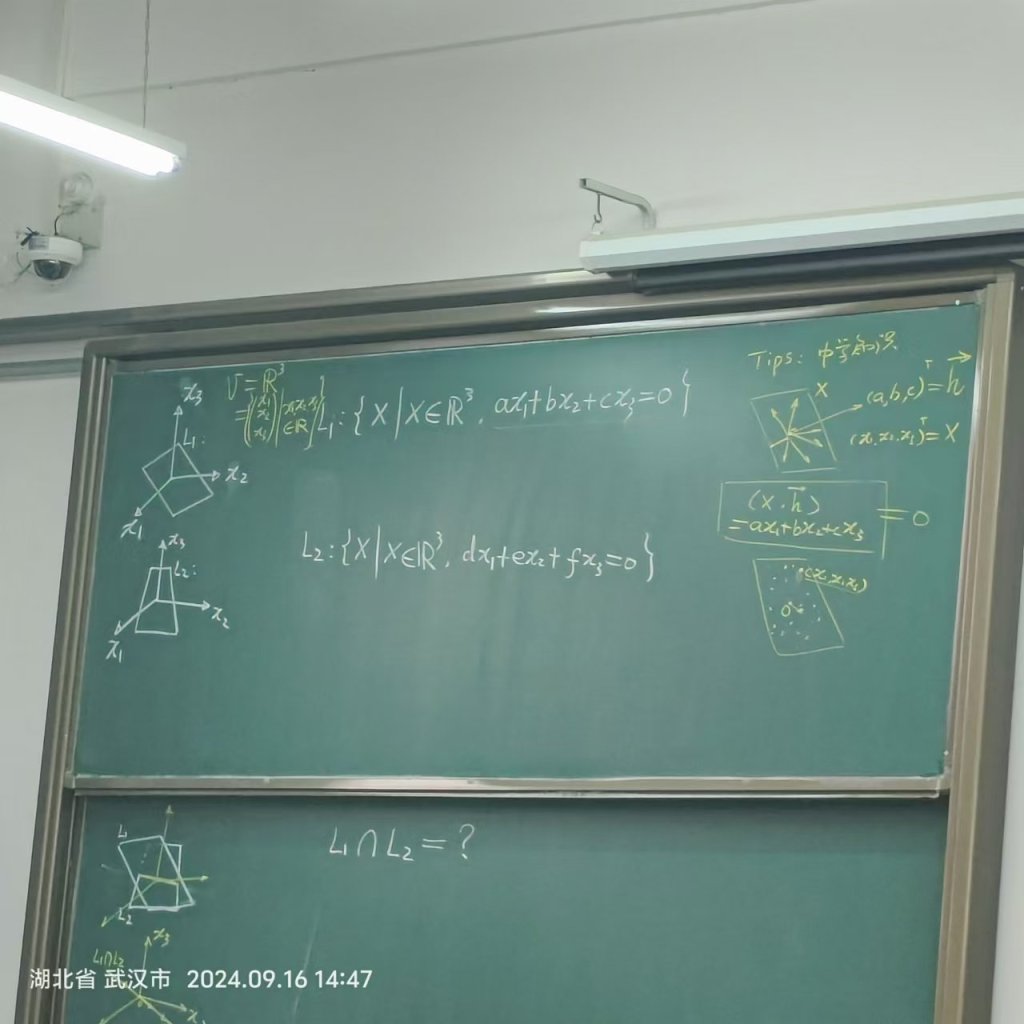 x₃
V = ℝ³
= {(x₁ x₂ x₃) | x₁x₂x₃ ∈ℝ}
L₁: {X | X∈ℝ³, ax₁+bx₂+cx₃=0}
L₁:
x₂
x₁
x₃
L₂:
x₂
x₁
L₂: {X | X∈ℝ³, dx₁+ex₂+fx₃=0}
Tips: 中学知识
X
(a,b,c)ᵀ = h⃗
(x₁,x₂,x₃)ᵀ = X
(X·h⃗)
= ax₁+bx₂+cx₃
= 0
(x₁,x₂,x₃)
L₁
L₂
L₁∩L₂ = ?
L₁∩L₂
x₃
湖北省 武汉市 2024.09.16 14:47